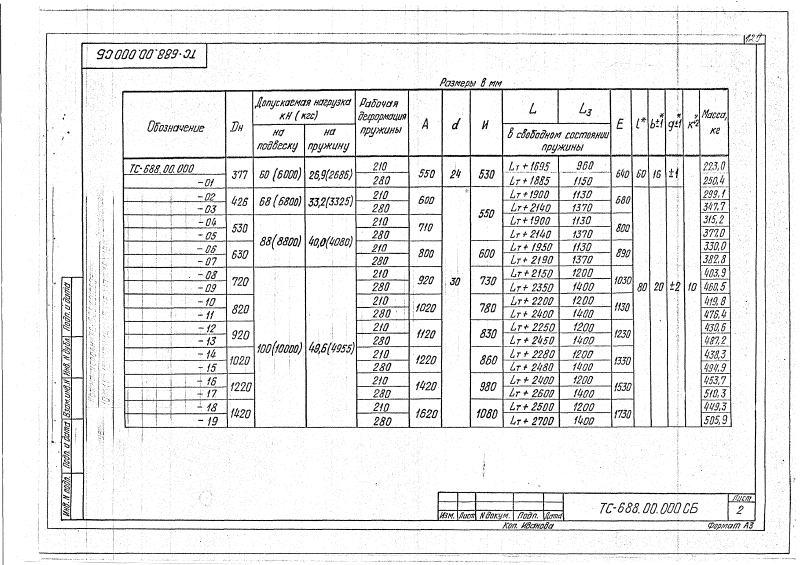 ТС-688.00.000 СБ
Размеры в мм
Обозначение Dн Допускаемая нагрузка кН (кгс) на подвеску на пружину Рабочая деформация пружины А d И L L3 в свободном состоянии пружины Е l* b±1* g±1* Масса, кг
ТС-688.00.000 377 60 (6000) 26,9(2686) 210 550 24 530 Lт + 1695 960 640 60 16 ±1 223,0
-01 280 Lт + 1885 1150 250,4
-02 426 68 (6800) 33,2(3325) 210 600 30 550 Lт + 1900 1130 680 80 20 ±2 10 299,1
-03 280 Lт + 2140 1370 347,7
-04 530 88(8800) 40,0(4080) 210 710 Lт + 1900 1130 800 315,2
-05 280 Lт + 2140 1370 377,0
-06 630 210 800 600 Lт + 1950 1130 890 330,0
-07 280 Lт + 2190 1370 382,8
-08 720 100(10000) 48,6(4955) 210 920 730 Lт + 2150 1200 1030 403,9
-09 280 Lт + 2350 1400 460,5
-10 820 210 1020 780 Lт + 2200 1200 1130 419,8
-11 280 Lт + 2400 1400 476,4
-12 920 210 1120 830 Lт + 2250 1200 1230 430,6
-13 280 Lт + 2450 1400 487,2
-14 1020 210 1220 860 Lт + 2280 1200 1330 438,3
-15 280 Lт + 2480 1400 494,9
-16 1220 210 1420 980 Lт + 2400 1200 1530 453,7
-17 280 Lт + 2600 1400 510,3
-18 1420 210 1620 1080 Lт + 2500 1200 1730 449,3
-19 280 Lт + 2700 1400 505,9
Инв. N подл. Подп. и дата Взам. инв. N Инв. N дубл. Подп. и дата
Изм. Лист N докум. Подп. Дата
ТС-688.00.000 СБ
Лист
2
Коп. Иванова
Формат А3